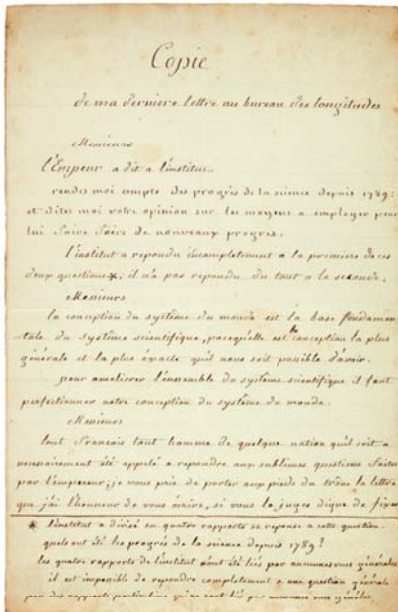 Copie
de ma derniere lettre au bureau des longitudes
Messieurs
l'Empeur a dit a l'institut.
rendez moi compte des progrès de la science depuis 1789:
et dites moi votre opinion sur les moyens a employer pour
lui faire faire de nouveaux progres.
l'institut a repondu incomplettement a la premiere de ces
deux questions *, il n'a pas repondu du tout a la seconde.
Messieurs
la conception du systême du monde est la base fondamen
tale du systême scientifique, parcequ'elle est la conception la plus
générale et la plus éxacte qu'il nous soit possible d'avoir.
pour ameliorer l'ensemble du systême scientifique il faut
perfectionner notre conception du systême du monde.
Messieurs
tout français tout homme de quelque nation qu'il soit a
necessairement été appelé a repondre aux sublimes questions faites
par l'empereur; je vous prie de porter aux pieds du trône la lettre
que j'ai l'honneur de vous écrire, si vous la jugez digne de fixer
* l'institut a divisé en quatre rapports sa reponse a cette question.
quels ont été les progrès de la science depuis 1789?
les quatre rapports de l'institut n'ont été liés par aucunes vues générales
il est impossible de repondre completement a une question générale
par des rapports particuliers qui ne sont liés par aucunes vues générales